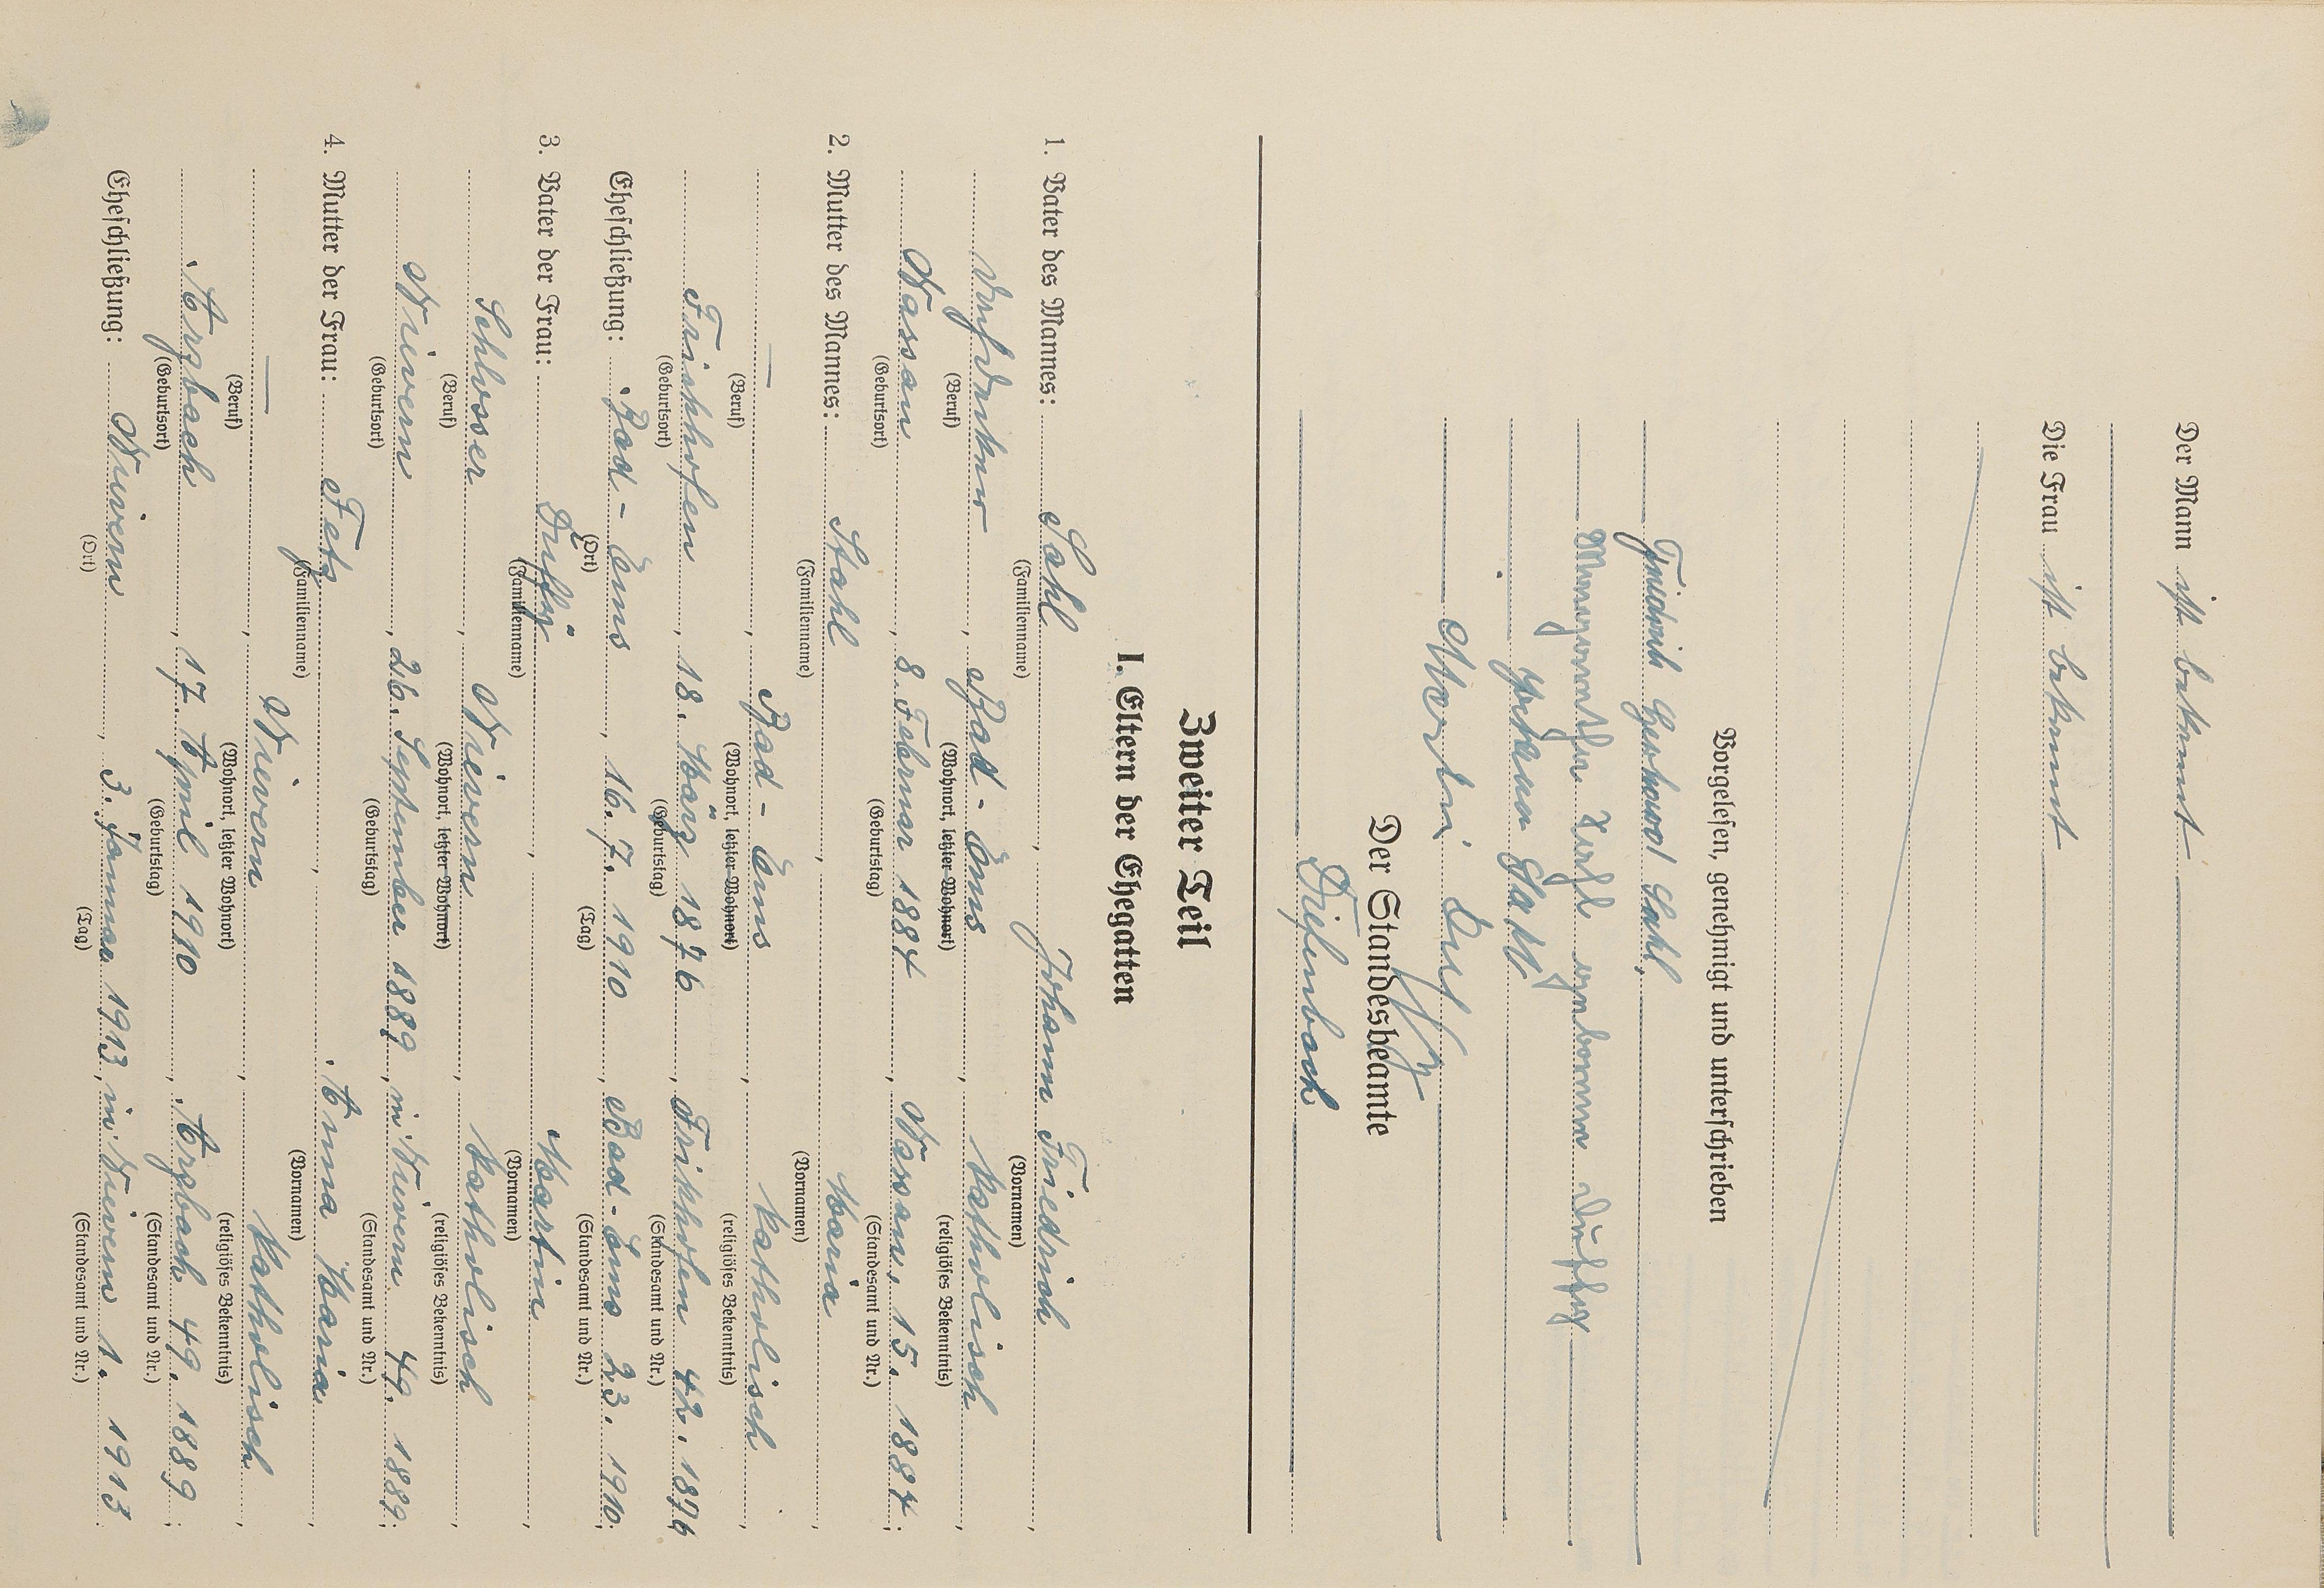 Der Mann ist bekannt
Die Frau ist bekannt
Vorgelesen, genehmigt und unterschrieben
Friedrich Sahl
geborene Duffy
Johann Sahl
Martin Duffy
Der Standesbeamte
Diefenbach
Zweiter Teil
I. Eltern der Ehegatten
1. Vater des Mannes: Sahl Johann Friedrich
(Familienname) (Vornamen)
Bad-Ems, katholisch,
(Beruf) (Wohnort, letzter Wohnort) (religiöses Bekenntnis)
Nassau, 8. Februar 1884, Nassau, 15. 1884;
(Geburtsort) (Geburtstag) (Standesamt und Nr.)
2. Mutter des Mannes: Stahl, Maria,
(Familienname) (Vornamen)
—, Bad-Ems, katholisch,
(Beruf) (Wohnort, letzter Wohnort) (religiöses Bekenntnis)
Frickhofen, 18. März 1876, Frickhofen 42. 1876
(Geburtsort) (Geburtstag) (Standesamt und Nr.)
Eheschließung: Bad-Ems, 16. 7. 1910, Bad-Ems 23. 1910;
(Ort) (Tag) (Standesamt und Nr.)
3. Vater der Frau: Duffy, Martin,
(Familienname) (Vornamen)
Schlosser, Nievern, katholisch,
(Beruf) (Wohnort, letzter Wohnort) (religiöses Bekenntnis)
Nievern, 26. September 1889, in Nievern 49. 1889;
(Geburtsort) (Geburtstag) (Standesamt und Nr.)
4. Mutter der Frau: Fetz, Anna Maria,
(Familienname) (Vornamen)
—, Nievern, katholisch,
(Beruf) (Wohnort, letzter Wohnort) (religiöses Bekenntnis)
Arzbach, 17. April, Arzbach 49. 1889;
(Geburtsort) (Geburtstag) (Standesamt und Nr.)
Eheschließung: Nievern, 3. Januar 1913, in Nievern 1. 1913
(Ort) (Tag) (Standesamt und Nr.)